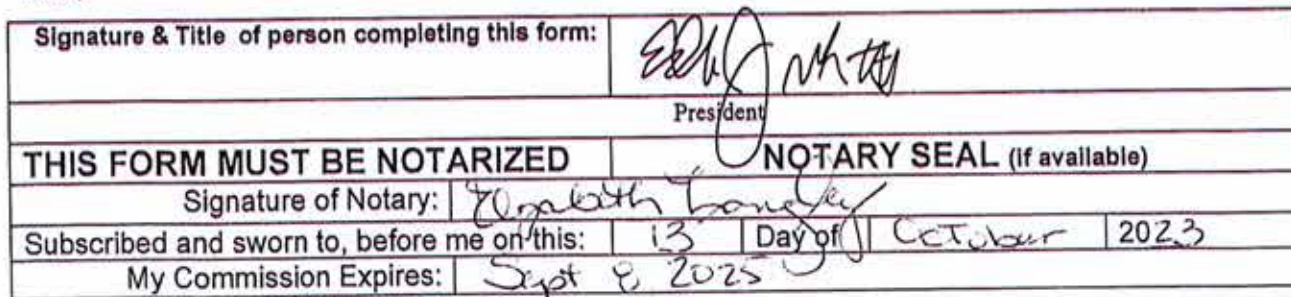 Signature & Title of person completing this form:
President
THIS FORM MUST BE NOTARIZED NOTARY SEAL (if available)
Signature of Notary: Elizabeth
Subscribed and sworn to, before me on this: 13 Day of October 2023
My Commission Expires: Sept 8, 2025